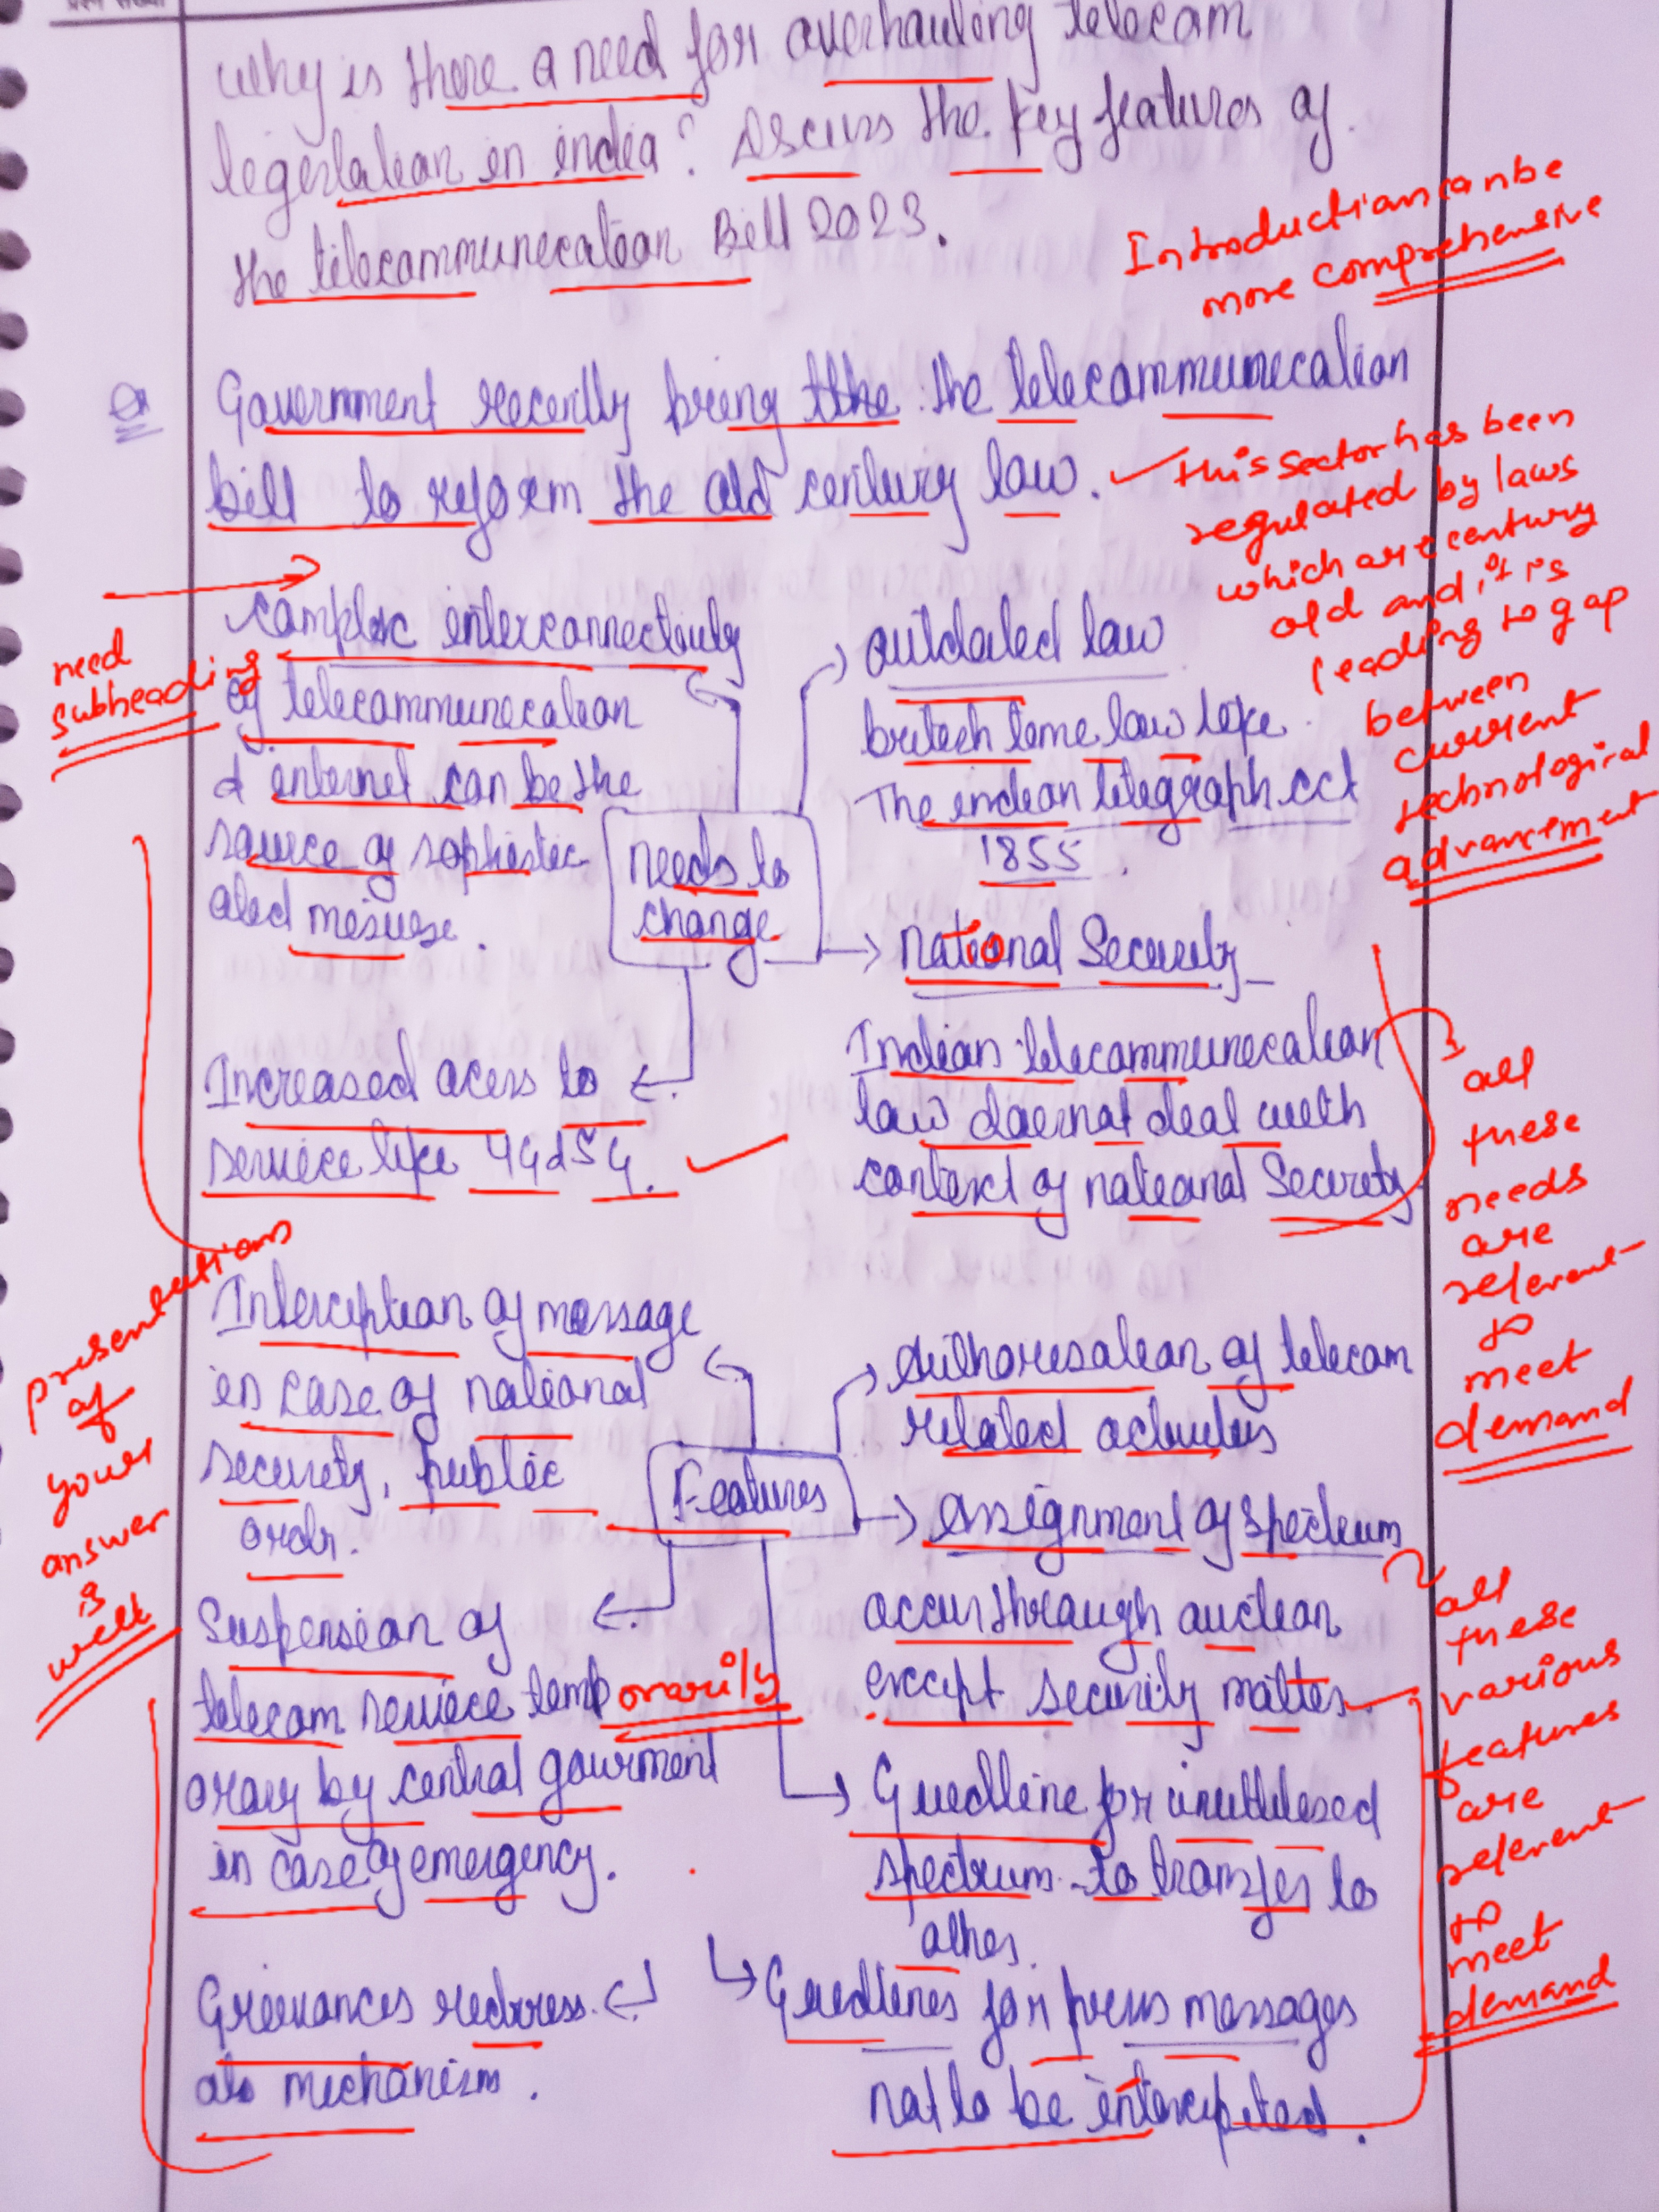 प्रश्न संख्या
Why is there a need for overhauling telecom
legislation in india? Discuss the key features of
the telecommunication Bill 2023.
Introduction can be
more comprehensive
Government recently bring the the telecommunication
bill to reform the old century law.
this sector has been
regulated by laws
which are century
old and it is
leading to gap
between
current
technological
advancement
need
subheading
complex interconnectivity
of telecommunication
& internet can be the
source of sophistic
ated misuse.
needs to
change
outdated law
british time law like
The indian telegraph act
1855.
national Security
Indian telecommunication
law doesnot deal with
context of national Security
Increased acess to
service like 4G & 5G.
all
these
needs
are
relevent
to
meet
demand
presentations
of
your
answer
is
well
Interception of message
in case of national
security, public
ordr.
Features
Authorisation of telecom
related activities
Assignment of spectrum
occur through auction
except security matter
Suspension of
telecom service temp orarily
orary by central gourment
in case of emergency.
Guidline for unutilised
spectrum to transfer to
other.
Grievances redress
als mechanism.
Guidlines for press messages
not to be intercepted.
all
these
various
features
are
relevent
to
meet
demand